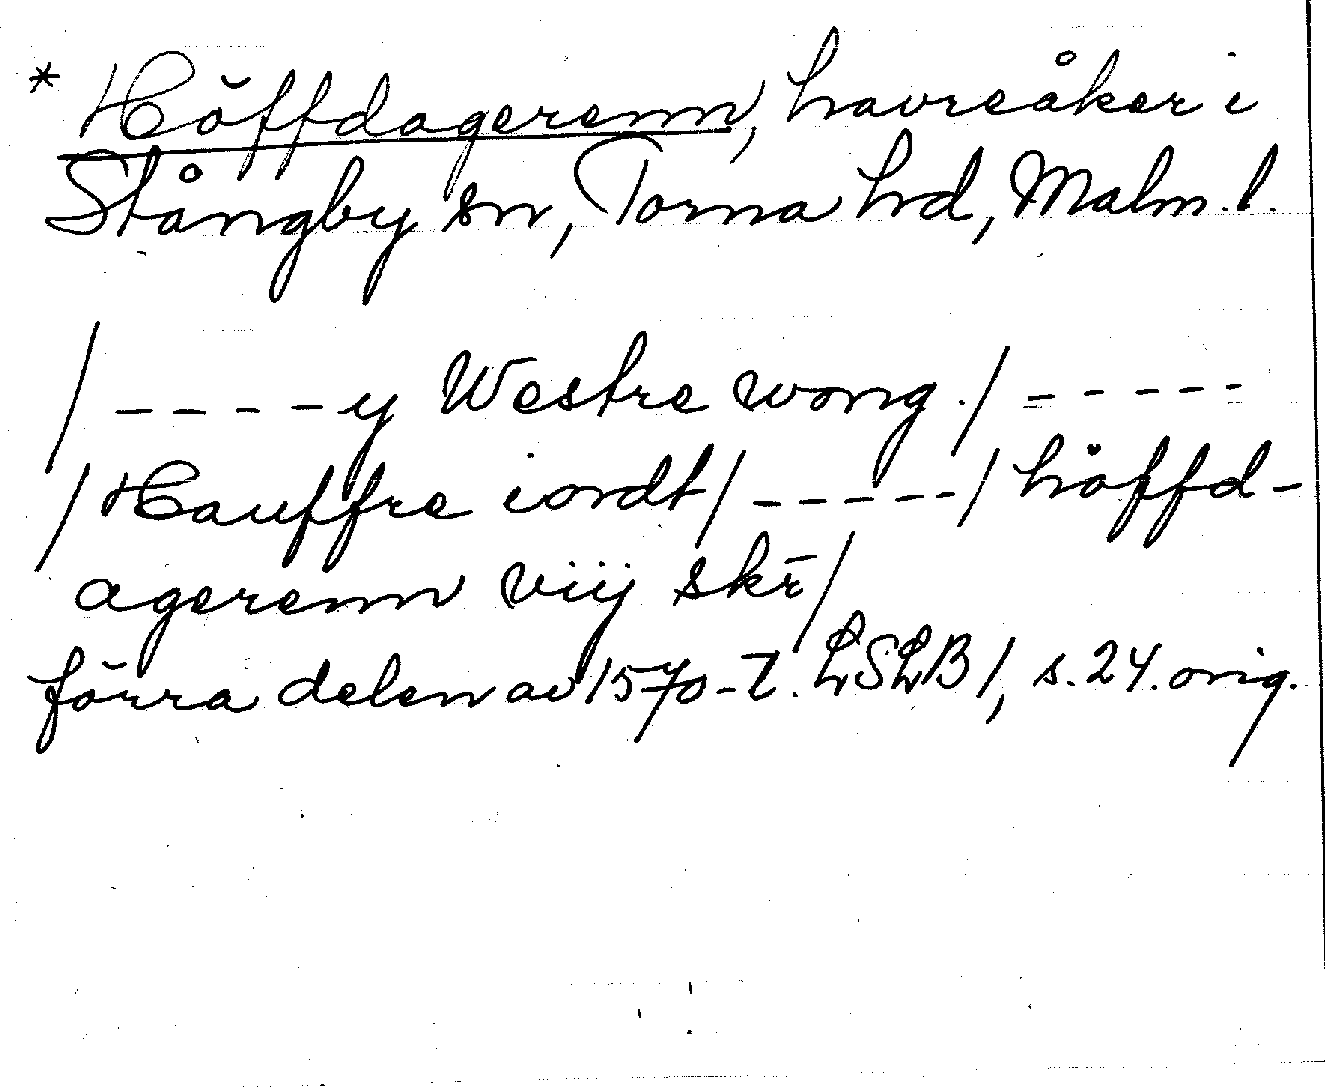 * Höffdagerenn, havreåker i
Stångby sn, Torna hd, Malm. l.
/ - - - - y Westre wong. / - - - - -
/ Hauffre iordt / - - - - - / höffd-
agerenn viij skr̄ /
förra delen av 1570-t. LSLB 1, s. 24. orig.